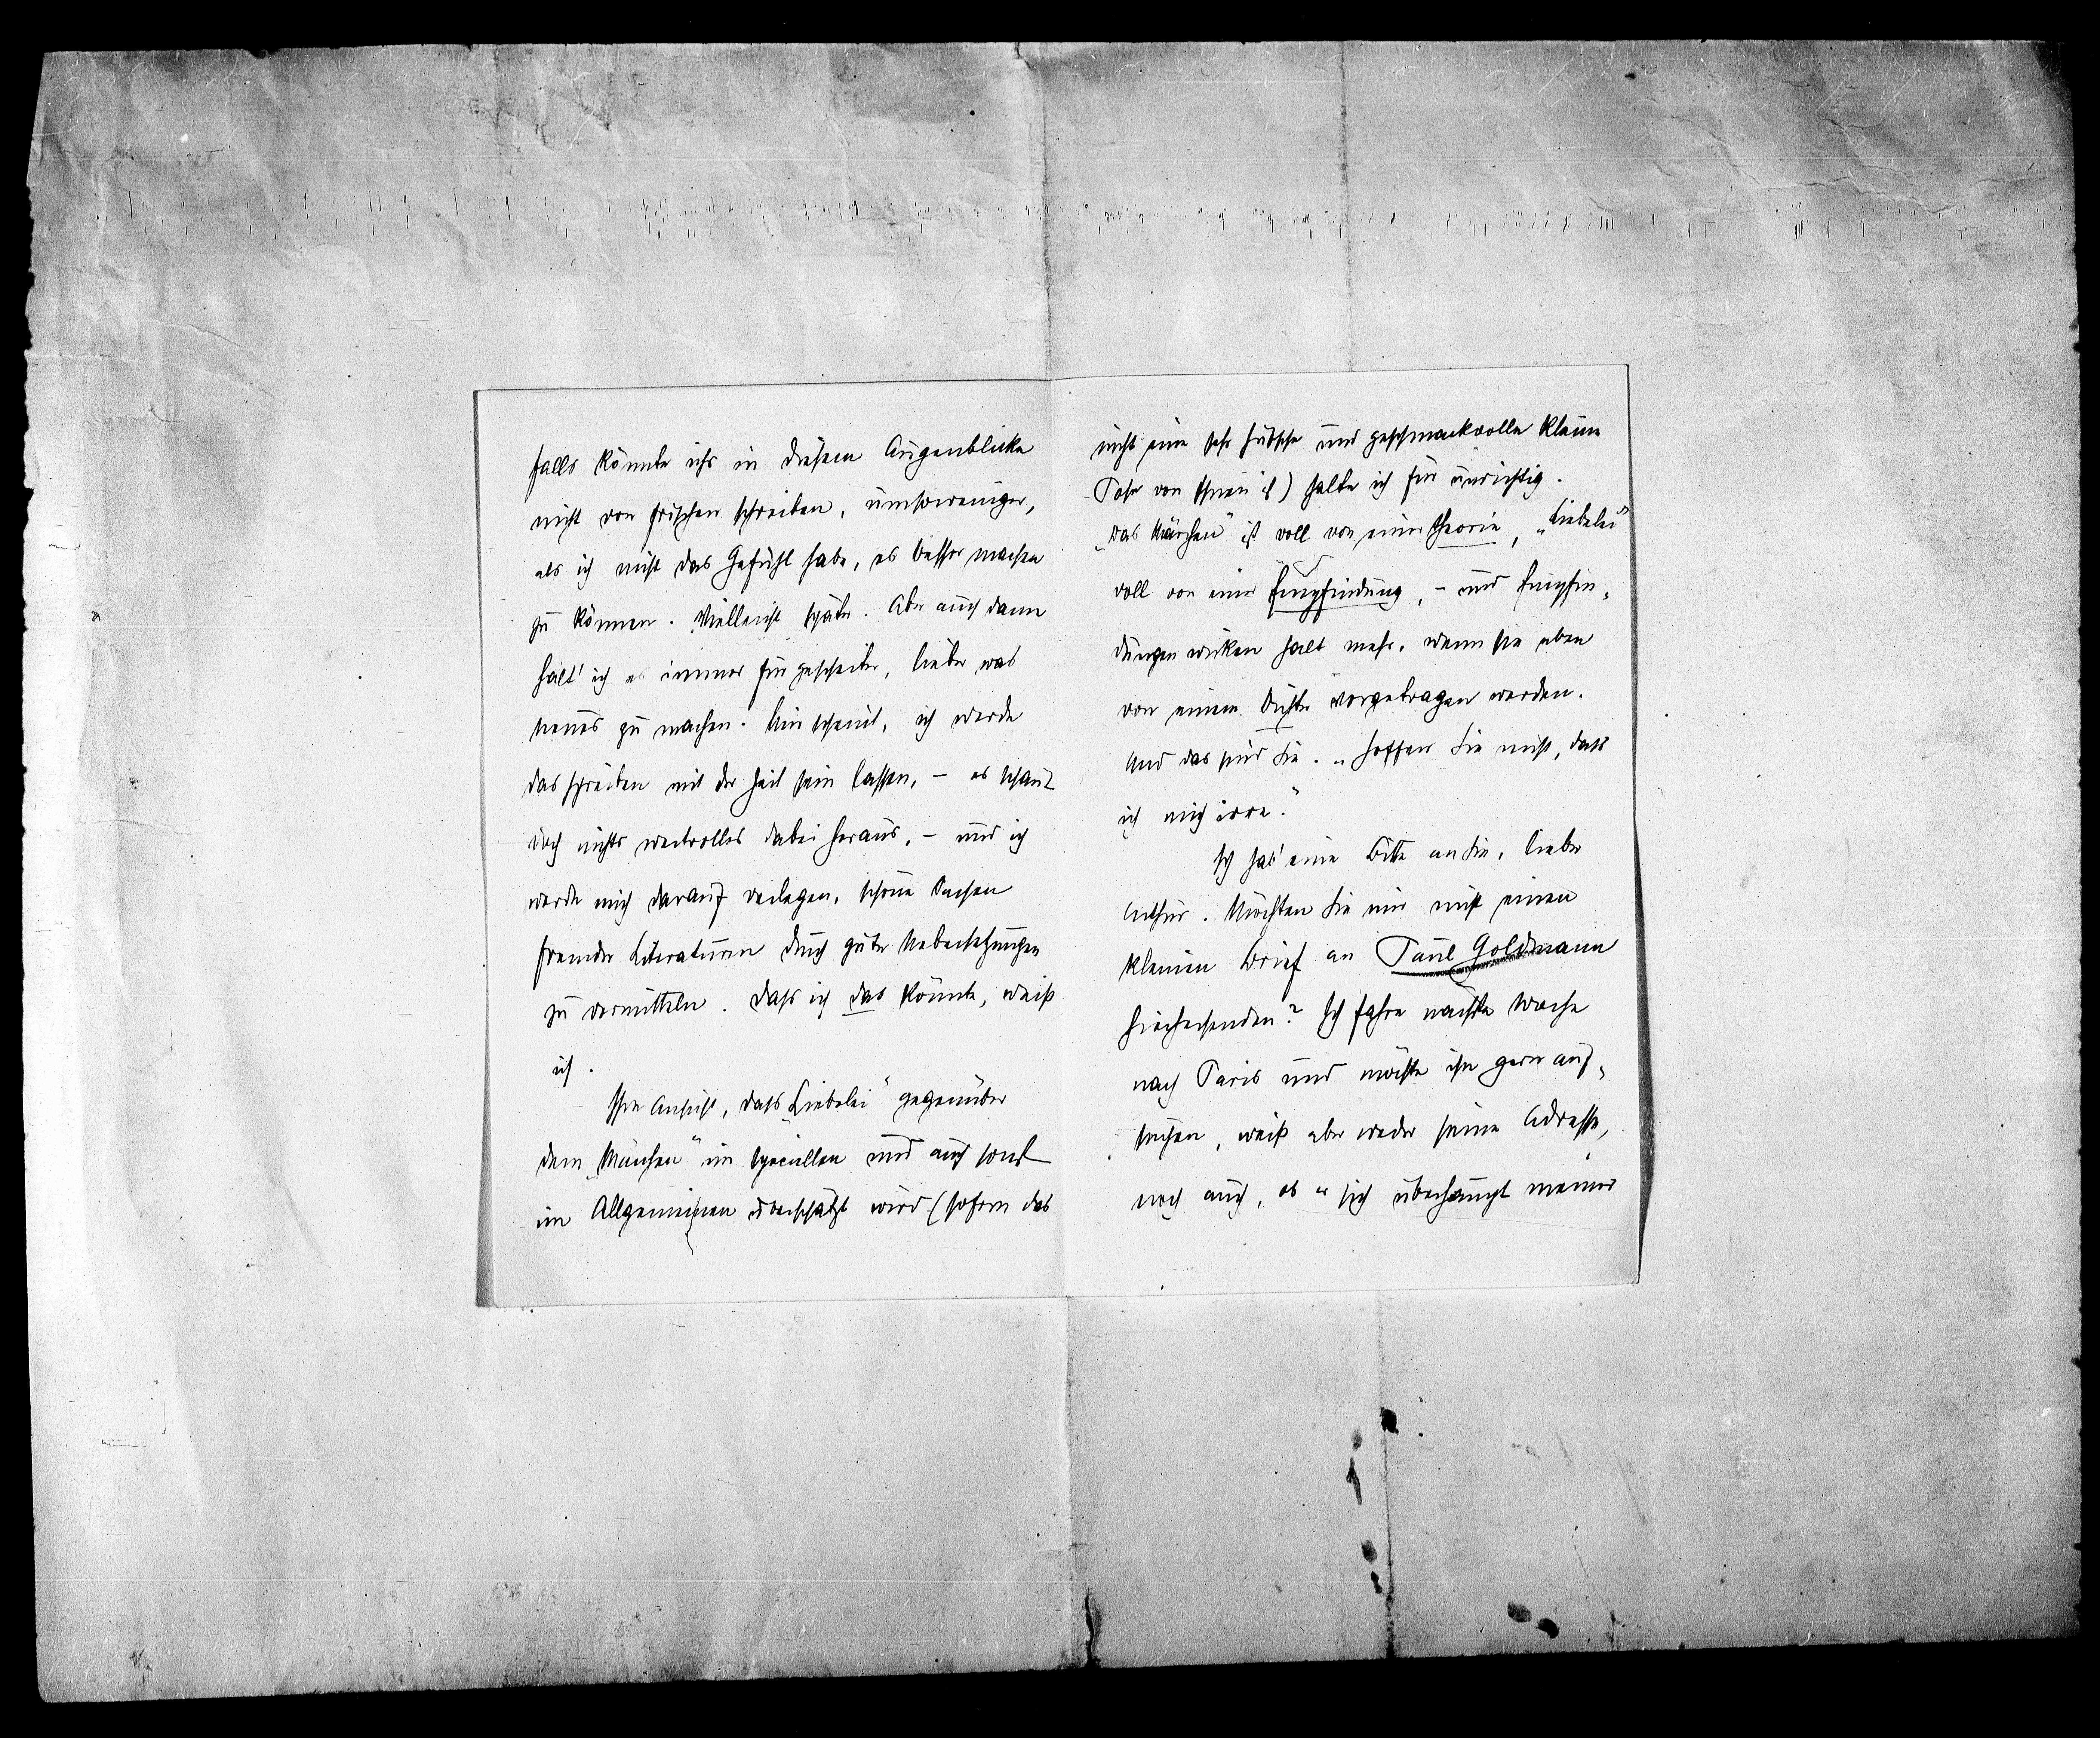 falls könnte ichs in diesem Augenblicke
nicht von frischen schreiben, umsoweniger,
als ich nicht das Gefühl habe, es besser machen
zu können. Vielleicht später. Aber auch dann
halt' ich es immer für gescheiter, lieber was
neues zu machen. Mir scheint, ich werde
das schreiben mit der Zeit sein lassen, – es schaut
doch nichts wertvolles dabei heraus, – und ich
werde mich darauf verlegen, schöne Sachen
fremder Literaturen durch gute Uebersetzungen
zu vermitteln. Dass ich das könnte, weiß
ich.
Ihre Ansicht, dass „Liebelei“ gegenüber
dem „Märchen“ im speciellen und auch sonst
im Allgemeinen überschätzt wird (sofern das
nicht eine sehr hübsche und geschmackvolle kleine
Pose von Ihnen ist) halte ich für unrichtig.
„Das Märchen“ ist voll von einer Theorie, „Liebelei“
voll von einer Empfindung, – und Empfin-
dungen wirken halt mehr, wenn sie eben
von einem Dichter vorgetragen werden.
Und das sind Sie. „Hoffen Sie nicht, dass
ich mich irre.“
Ich hab' eine Bitte an Sie, lieber
Arthur. Möchten Sie mir nicht einen
kleinen Brief an Paul Goldmann
hierhersenden? Ich fahre nächste Woche
nach Paris und möchte ihn gern auf-
suchen, weiß aber weder seine Adresse,
noch auch, ob er sich überhaupt meiner